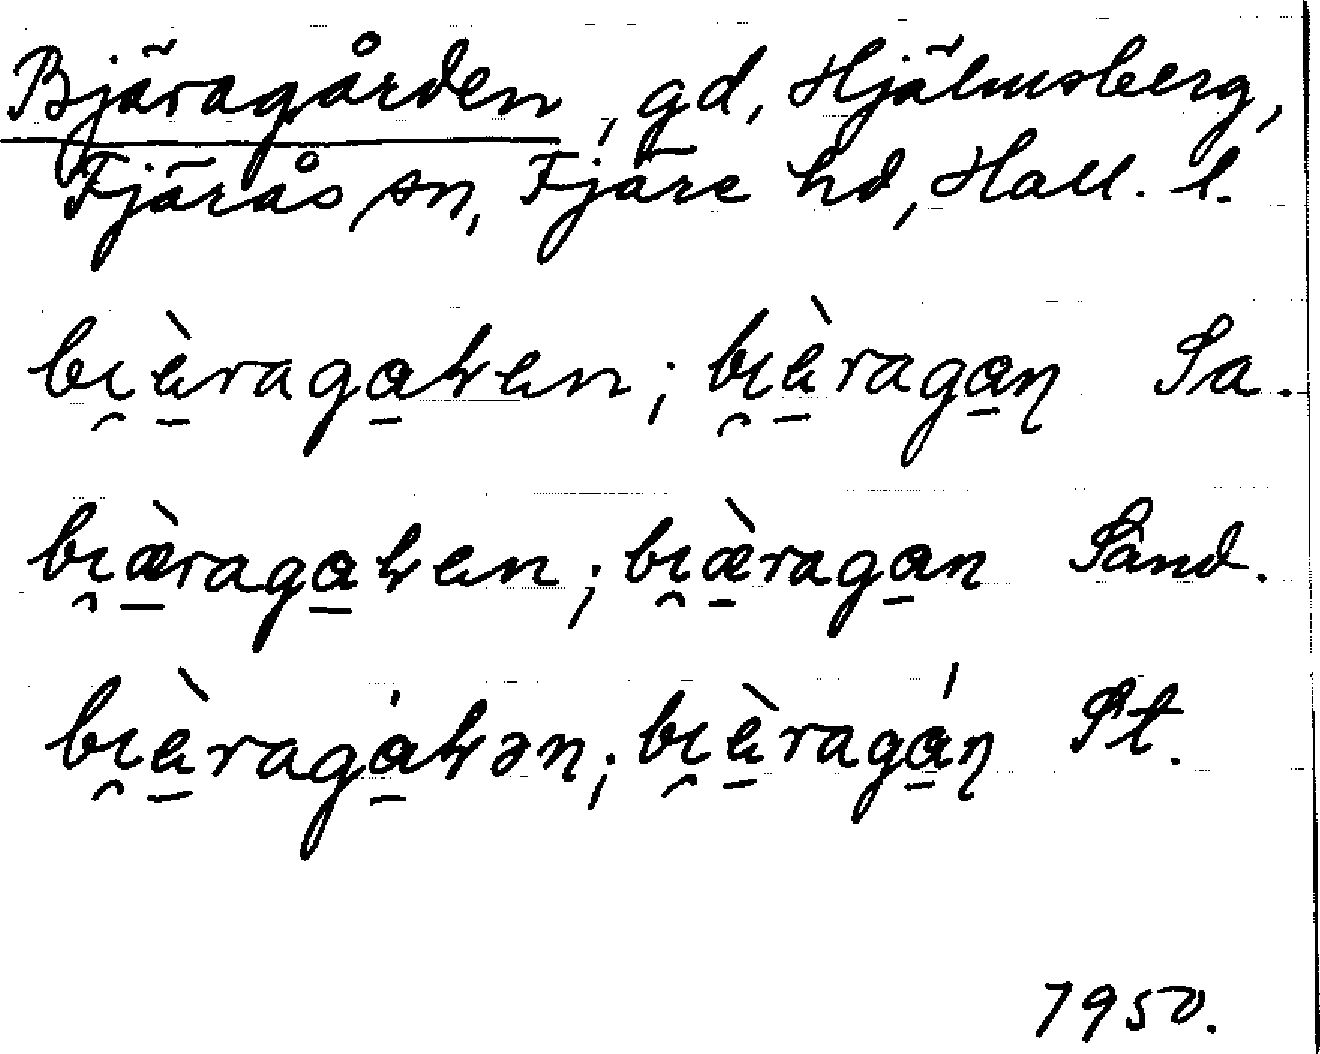 Bjäragården, gd, Hjälmsberg,
Fjärås sn, Fjäre hd, Hall. l.
bı̯ὲ̠raga̠ꝛen; bı̯ὲ̠raga̠ɳ Sa.
bı̯æ̠̀raga̠ꝛen; bı̯æ̠̀raga̠n Sand.
bı̯ὲ̠ragá̠ꝛən; bı̯ὲ̠ragá̠ɳ St.
1950.